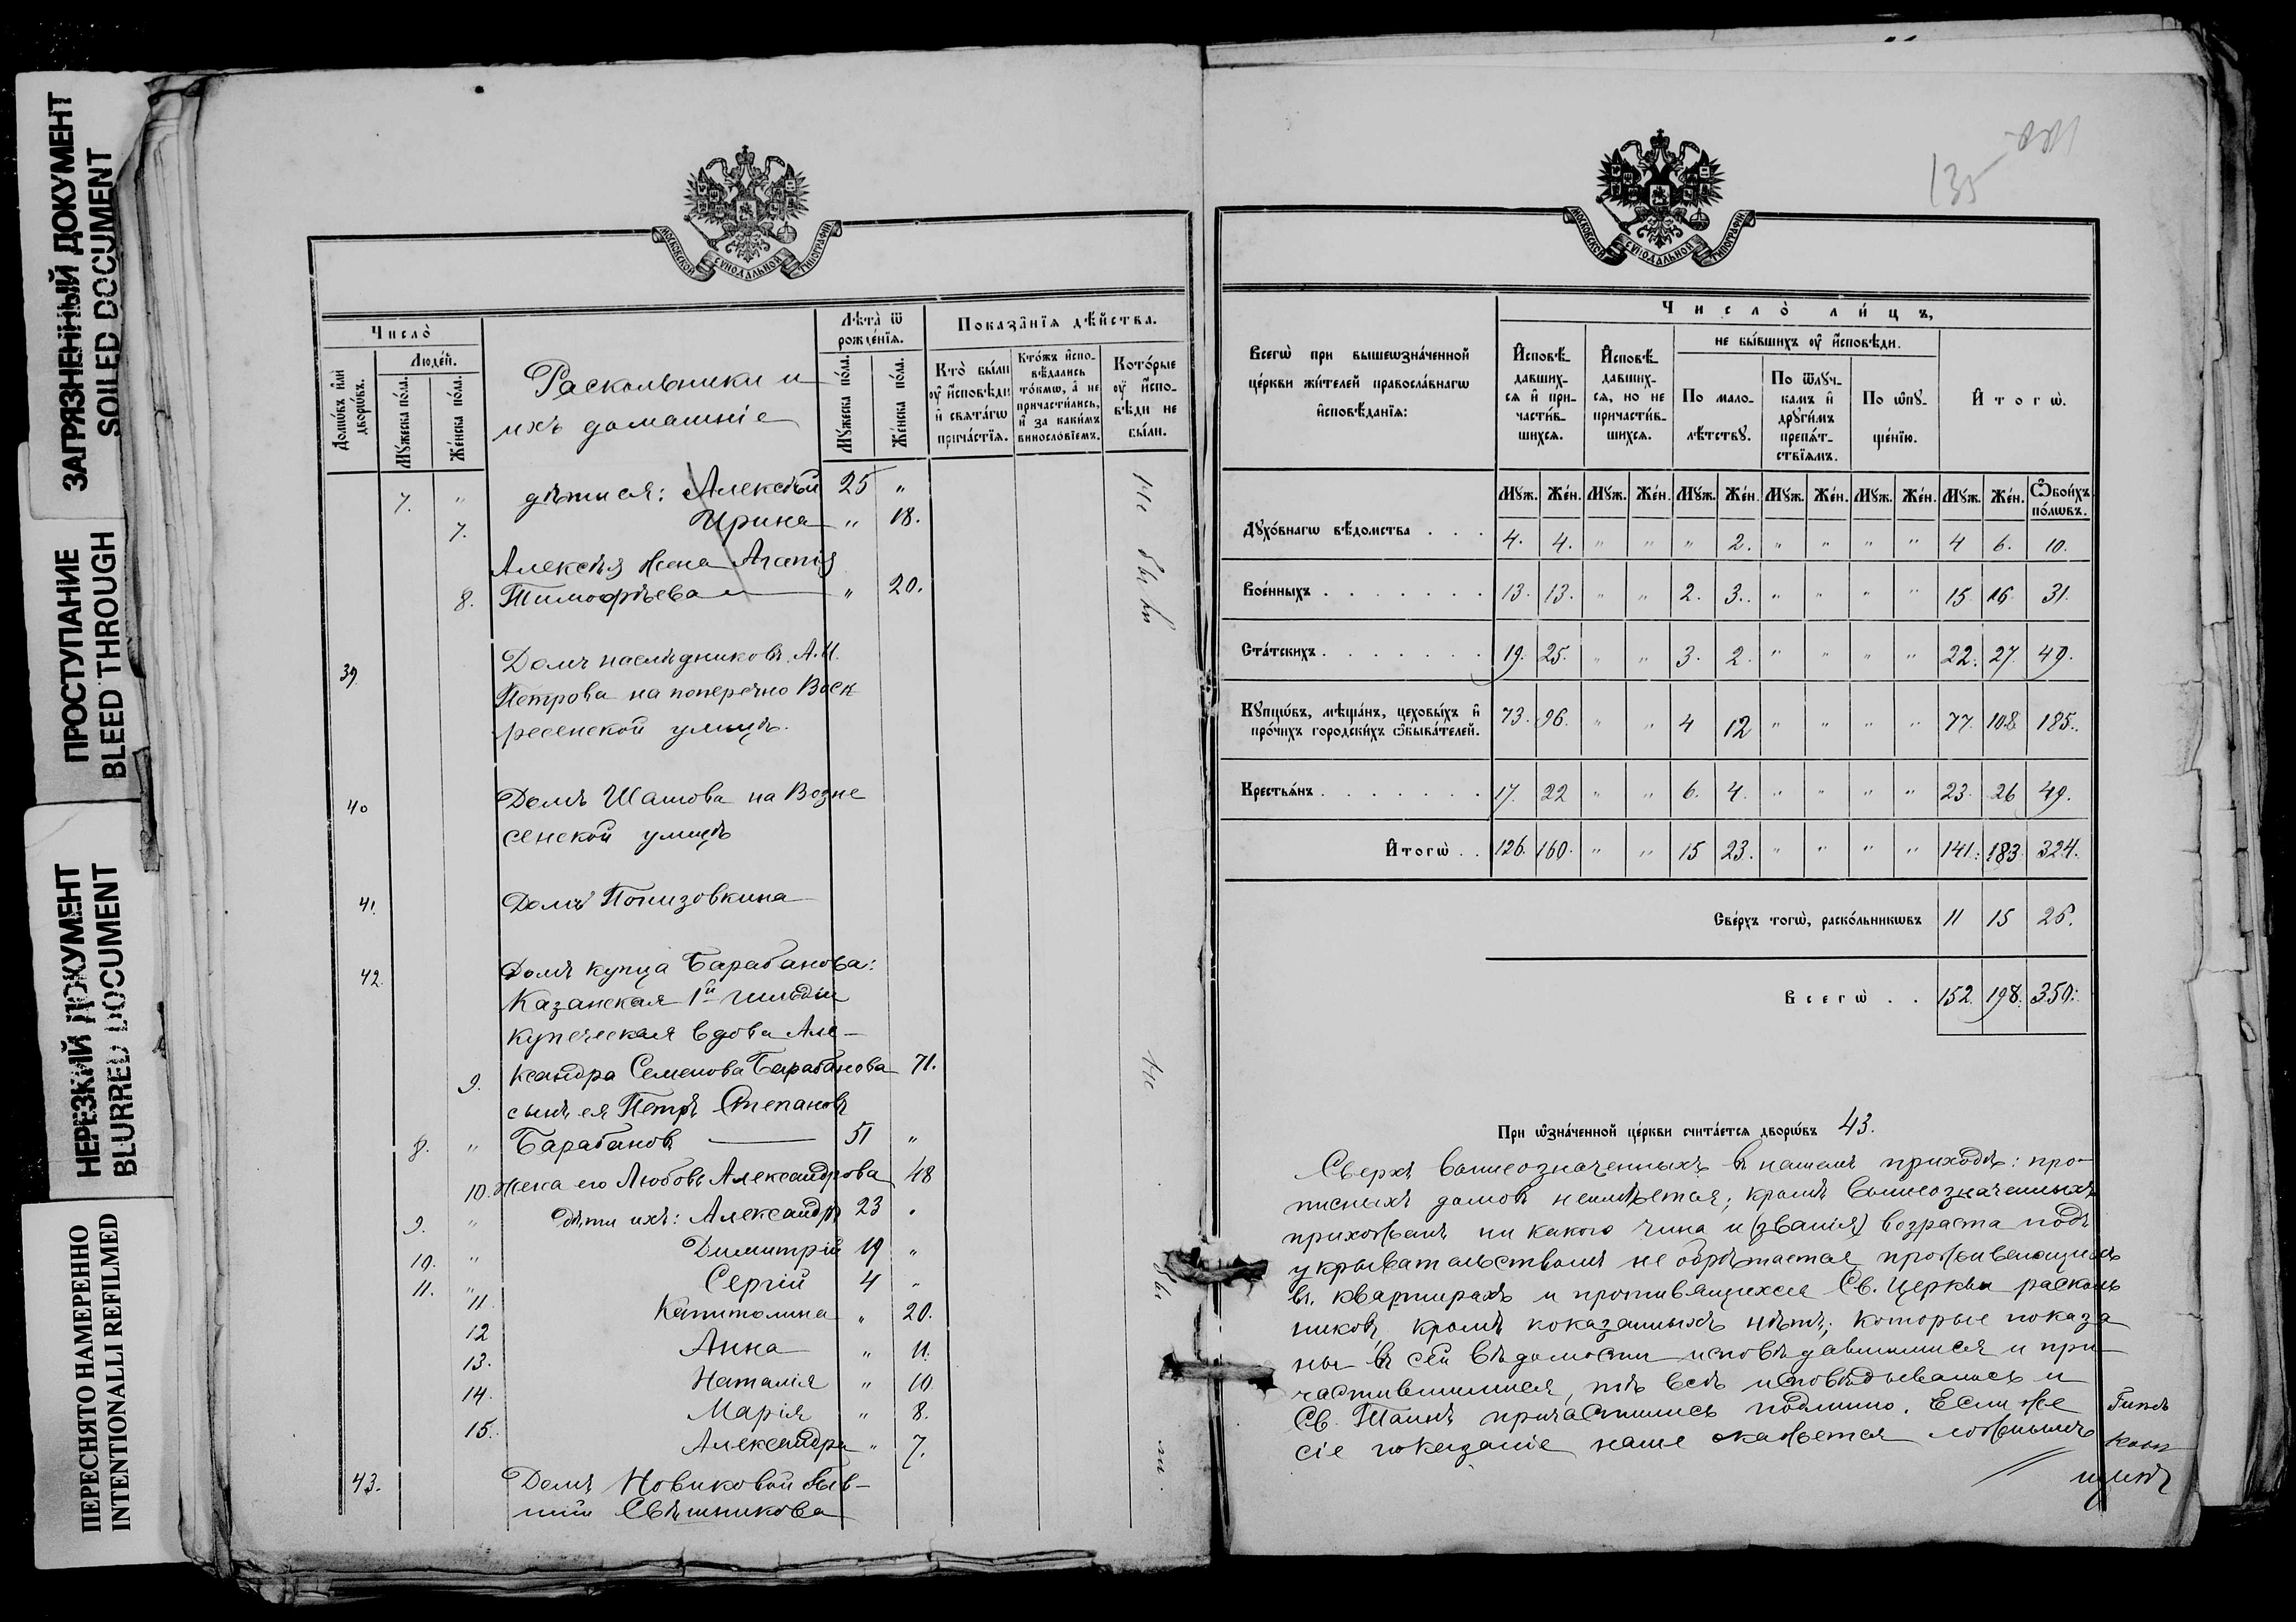 ЗАГРЯЗНЕННЫЙ ДОКУМЕНТ
SOILED DOCUMENT
ПРОСТУПАНИЕ
BLEED THROUGH
НЕРЕЗКИЙ ДОКУМЕНТ
BLURRED DOCUMENT
ПЕРЕСНЯТО НАМЕРЕННО
INTENTIONALLI REFILMED
МОСКОВСКОЙ СѴНОДАЛЬНОЙ ТИПОГРАФІИ
Число̀
Домѡвъ и҆лѝ дворѡвъ.
Людей.
Мꙋжеска по́ла.
Же́нска по́ла.
Раскольники и
ихъ домашніе
Лѣта̀ ѿ рожде́нїѧ.
Мꙋжеска по́ла.
Же́нска по́ла.
Показа̑нїѧ дѣ́йства.
Кто̀ бы́ли ᲂу҆ и҆́сповѣди и҆ свѧта́гѡ прича́стїѧ.
Кто́жъ и҆спо-вѣ́дались то́кмѡ, а҆ не причасти́лись, и҆ за каки́мъ винословїемъ.
Кото́рые ᲂу҆ и҆́спо-вѣди не бы́ли.
7. " дѣти ея: Алексѣй 25 "
7. Ирина " 18.
Алексѣя жена Агапія
8. Тимофѣева " 20.
39 Домъ наслѣдниковъ А.И.
Петрова на поперечно Воск
ресенской улицѣ.
40 Домъ Шамова на Возне
сенской улицѣ
41. Домъ Понизовкина
42 Домъ купца Барабанова:
Казанская 1й гильдіи
купеческая вдова Але-
9. ксандра Семенова Барабанова 71.
сынъ ея Петръ Степановъ
8. " Барабановъ 51 "
10. жена его Любовь Александрова 48
9. " дѣти ихъ: Александръ 23 "
10. " Димитрій 19 "
11. " Сергій 4 "
11. Капитолина " 20.
12 Анна " 11.
13. Наталія " 10
14. Марія " 8.
15. Александра " 7.
43. Домъ Новиковой быв-
шій Свѣшникова
Не были
135
МОСКОВСКОЙ СѴНОДАЛЬНОЙ ТИПОГРАФІИ
Всегѡ̀ при вышеѡзна́ченной це́ркви жи́телей правосла́внагѡ и҆сповѣ́данїѧ:
Число̀ ли́цъ,
И҆сповѣ-давших-сѧ и҆ при-части́в-шихсѧ.
И҆сповѣ-давших-сѧ, но не причасти́в-шихсѧ.
не бы́вшихъ ᲂу҆ и҆́сповѣди.
По мало-лѣ́тствꙋ.
По ѿлꙋч-камъ и҆ дрꙋги̑мъ препѧ́т-ствїѧмъ.
По ѡ҆пꙋ-ще́нїю.
И҆тогѡ̀.
Мꙋж. Же́н. Мꙋж. Же́н. Мꙋж. Же́н. Мꙋж. Же́н. Мꙋж. Же́н. Мꙋж. Же́н. Ѻ҆бои́хъ по́лѡвъ.
Дꙋхо́внагѡ вѣ́домства . . . 4. 4. " " " 2. " " " " 4 6. 10.
Вое́нныхъ . . . . . . . 13. 13. " " 2. 3. " " " " 15 16 31.
Ста́тскихъ . . . . . . . 19. 25. " " 3. 2. " " " " 22. 27. 49.
Кꙋпцѡ́въ, мѣща́нъ, цеховы́хъ и҆ про́чихъ городски́хъ ѡ҆быва́телей. 73. 96. " " 4 12 " " " " 77. 108 185.
Крестьѧ́нъ . . . . . . . 17. 22 " " 6. 4. " " " " 23. 26 49.
И҆тогѡ̀ . . 126. 160. " " 15 23. " " " " 141. 183. 324.
Све́рхъ тогѡ̀, раско́льникѡвъ 11 15 26.
Всегѡ̀ . . 152. 198. 350.
При ѡ҆зна́ченной це́ркви счита́етсѧ дворѡ́въ 43.
Сверхъ вышеозначенныхъ въ нашемъ приходѣ: про-
писныхъ домовъ неимѣется; кромѣ вышеозначенныхъ
прихожанъ ни какого чина и (званія) возраста подъ
укрывательствомъ не обрѣтается проживающихъ
въ квартирахъ и противящихся Св. Церкви расколь
никовъ кромѣ показанныхъ нѣтъ; которые показа
ны въ сей вѣдомости исповѣдавшимися и при-
частившимися, тѣ всѣ исповѣдывались и
Св. Таинъ причастились подлинно. Если же
сіе показаніе наше окажется ложнымъ